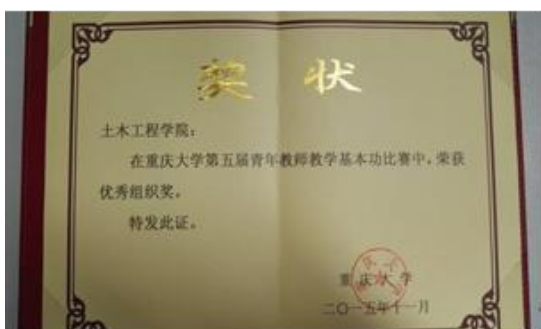 奖 状
土木工程学院：
在重庆大学第五届青年教师教学基本功比赛中，荣获
优秀组织奖。
特发此证。
重庆大学
二〇一五年十一月